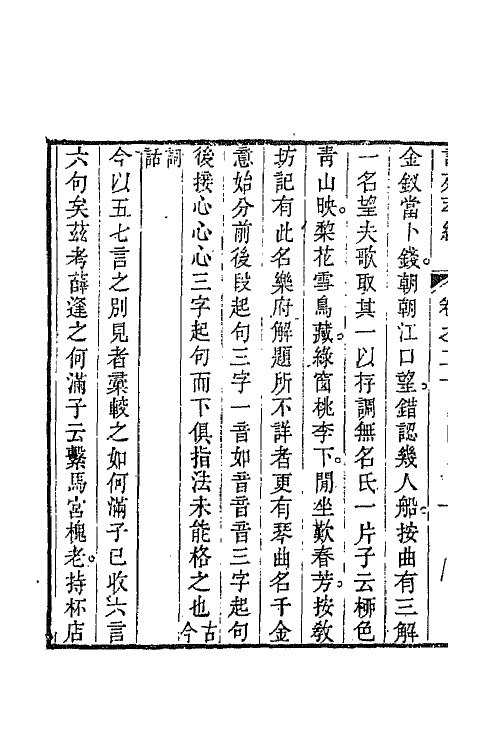 金釵當卜錢朝朝江口望。錯認幾人船。按曲有三解
一名望夫歌取其一以存調無名氏一片子云桺色
靑山映。棃花雪鳥藏。綠窗桃李下。閒坐歎春芳。按敎
坊記有此名樂府解題所不詳者更有琴曲名千金
意始分前後段起句三字一音如音音音三字起句
後接心心心三字起句而下俱指法未能格之也古今
詞話
今以五七言之別見者彚較之如何滿子已收六言
六句矣茲考薛逢之何滿子云繫馬宮槐老。持杯店